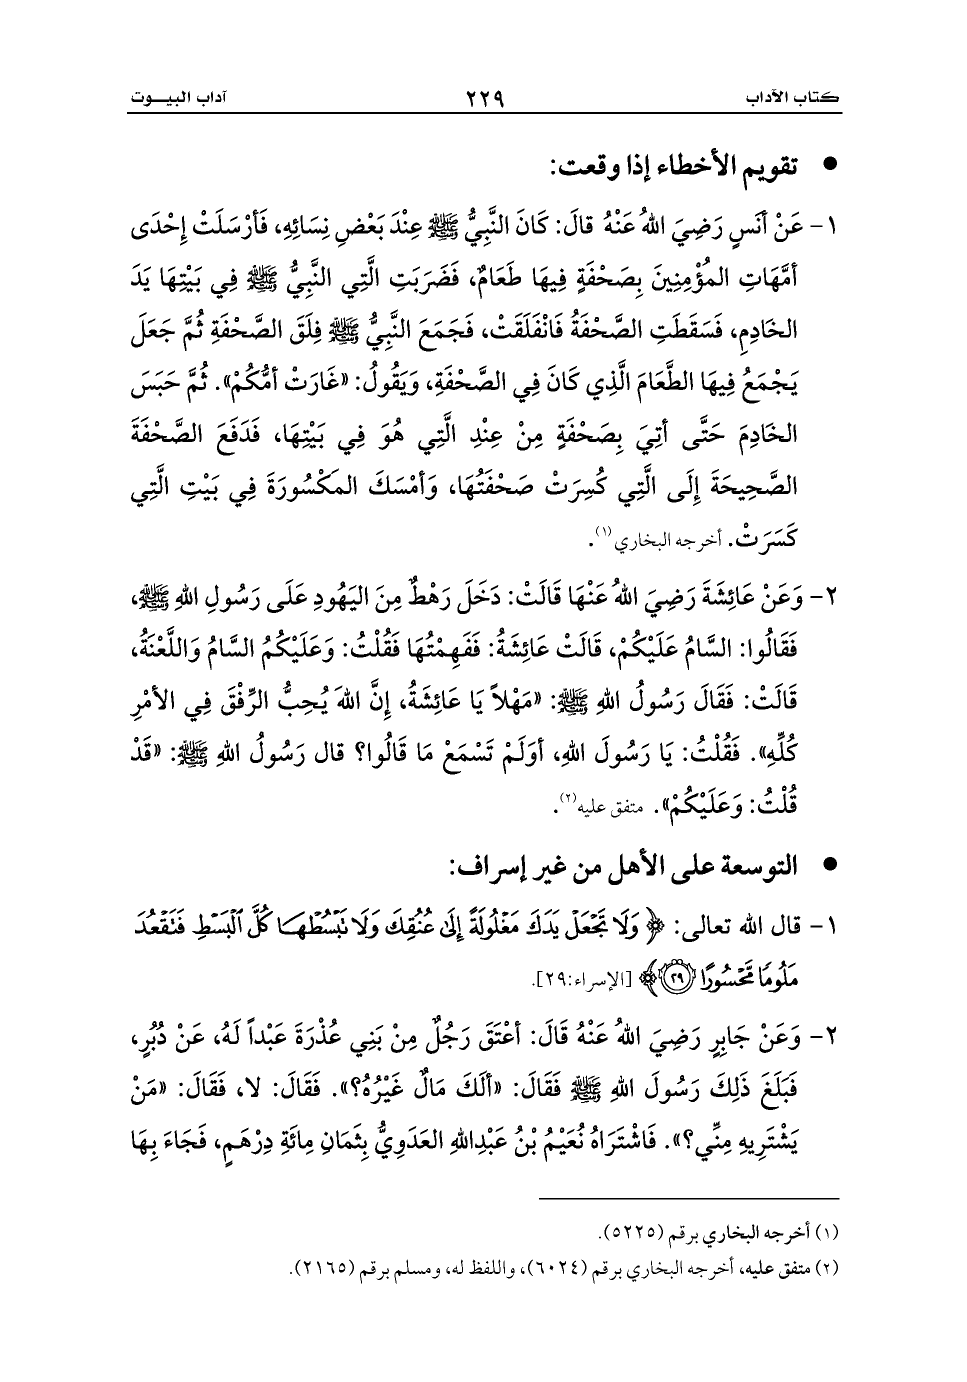 كتاب الآداب ٢٢٩ آداب البيـــوت
● تقويم الأخطاء إذا وقعت:
١- عَنْ أنَسٍ رَضِيَ اللهُ عَنْهُ قالَ: كَانَ النَّبِيُّ ﷺ عِنْدَ بَعْضِ نِسَائِهِ، فَأرْسَلَتْ إِحْدَى
أمَّهَاتِ المُؤْمِنِينَ بِصَحْفَةٍ فِيهَا طَعَامٌ، فَضَرَبَتِ الَّتِي النَّبِيُّ ﷺ فِي بَيْتِهَا يَدَ
الخَادِمِ، فَسَقَطَتِ الصَّحْفَةُ فَانْفَلَقَتْ، فَجَمَعَ النَّبِيُّ ﷺ فِلَقَ الصَّحْفَةِ ثُمَّ جَعَلَ
يَجْمَعُ فِيهَا الطَّعَامَ الَّذِي كَانَ فِي الصَّحْفَةِ، وَيَقُولُ: «غَارَتْ أمُّكُمْ». ثُمَّ حَبَسَ
الخَادِمَ حَتَّى أتِيَ بِصَحْفَةٍ مِنْ عِنْدِ الَّتِي هُوَ فِي بَيْتِهَا، فَدَفَعَ الصَّحْفَةَ
الصَّحِيحَةَ إِلَى الَّتِي كُسِرَتْ صَحْفَتُهَا، وَأمْسَكَ المَكْسُورَةَ فِي بَيْتِ الَّتِي
كَسَرَتْ. أخرجه البخاري(١).
٢- وَعَنْ عَائِشَةَ رَضِيَ اللهُ عَنْهَا قَالَتْ: دَخَلَ رَهْطٌ مِنَ اليَهُودِ عَلَى رَسُولِ اللهِ ﷺ،
فَقَالُوا: السَّامُ عَلَيْكُمْ، قَالَتْ عَائِشَةُ: فَفَهِمْتُهَا فَقُلْتُ: وَعَلَيْكُمُ السَّامُ وَاللَّعْنَةُ،
قَالَتْ: فَقَالَ رَسُولُ اللهِ ﷺ: «مَهْلاً يَا عَائِشَةُ، إِنَّ اللهَ يُحِبُّ الرِّفْقَ فِي الأمْرِ
كُلِّهِ». فَقُلْتُ: يَا رَسُولَ اللهِ، أوَلَمْ تَسْمَعْ مَا قَالُوا؟ قال رَسُولُ اللهِ ﷺ: «قَدْ
قُلْتُ: وَعَلَيْكُمْ». متفق عليه(٢).
● التوسعة على الأهل من غير إسراف:
١- قال الله تعالى: ﴿وَلَا تَجْعَلْ يَدَكَ مَغْلُولَةً إِلَىٰ عُنُقِكَ وَلَا تَبْسُطْهَا كُلَّ ٱلْبَسْطِ فَتَقْعُدَ
مَلُومًا مَّحْسُورًا ۝٢٩﴾ [الإسراء:٢٩].
٢- وَعَنْ جَابِرٍ رَضِيَ اللهُ عَنْهُ قَالَ: أعْتَقَ رَجُلٌ مِنْ بَنِي عُذْرَةَ عَبْداً لَهُ، عَنْ دُبُرٍ،
فَبَلَغَ ذَلِكَ رَسُولَ اللهِ ﷺ فَقَالَ: «ألَكَ مَالٌ غَيْرُهُ؟». فَقَالَ: لا، فَقَالَ: «مَنْ
يَشْتَرِيهِ مِنِّي؟». فَاشْتَرَاهُ نُعَيْمُ بْنُ عَبْدِاللهِ العَدَوِيُّ بِثَمَانِ مِائَةِ دِرْهَمٍ، فَجَاءَ بِهَا
(١) أخرجه البخاري برقم (٥٢٢٥).
(٢) متفق عليه، أخرجه البخاري برقم (٦٠٢٤)، واللفظ له، ومسلم برقم (٢١٦٥).